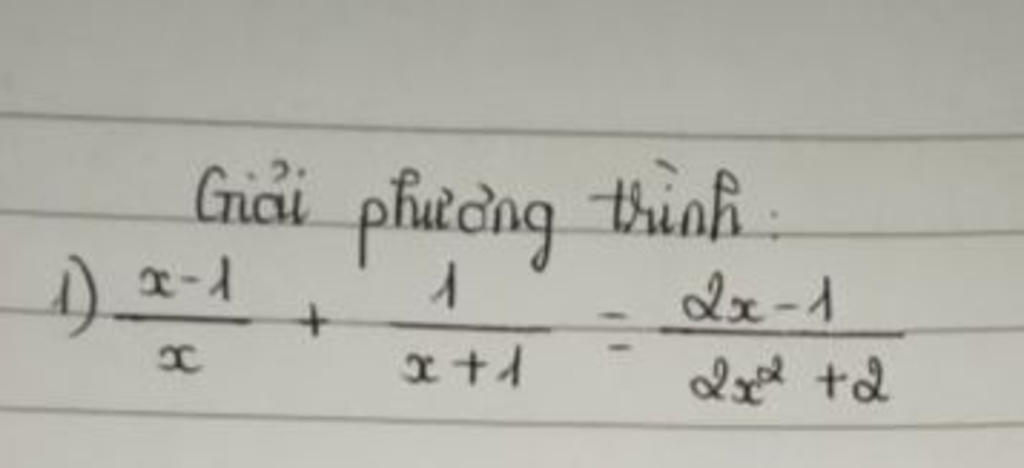 Giải phương trình:
1) \frac{x-1}{x} + \frac{1}{x+1} = \frac{2x-1}{2x^2+2}